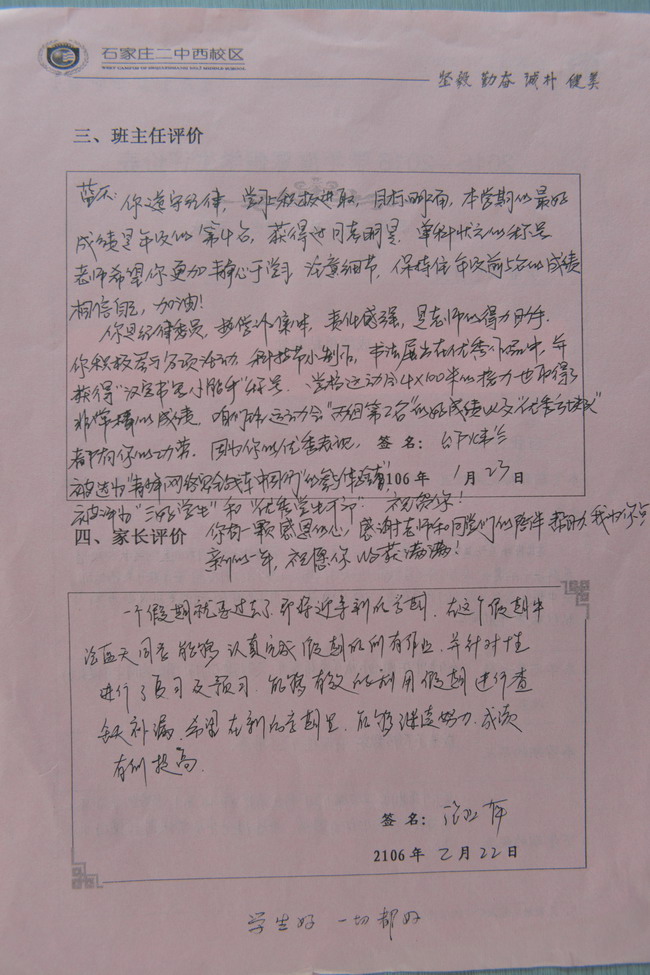 石家庄二中西校区
坚毅 勤奋 诚朴 健美
三、班主任评价
蓝天：你遵守纪律，学习积极进取，目标明确，本学期的最好
成绩是年级的第4名，获得过月考明星、单科状元的称号
老师希望你更加静心于学习，注意细节，保持住年级前5名的成绩
相信自己，加油！
你是纪律委员，责任感强，是老师的得力助手.
你积极参与各项活动，科技节小制作，书法展出在优秀作品中，并
获得"汉字书写小能手"称号. 学校运动会4×100米的接力也取得了
非常棒的成绩，咱们班运动会"两个第2名"的好成绩以及"优秀
都有你的功劳. 因为你的优秀表现，签 名：
被选为"青少年网络
2106 年 1 月 23 日
被评为"三好学生"和"优秀学生干部". 祝贺你！
四、家长评价
你有一颗感恩的心，感谢老师和同学们的陪伴帮助，我为你点
新的一年，祝愿你收获满满！
一个假期就要过去了，即将迎来新的学期，在这个假期中
蓝天同学能够认真完成假期的所有作业，并针对性
进行了复习及预习，能够有效的利用假期进行查
缺补漏，希望在新的学期里，能够继续努力，成绩
有所提高.
签 名：
2106 年 2 月 22 日
学生好 一切都好